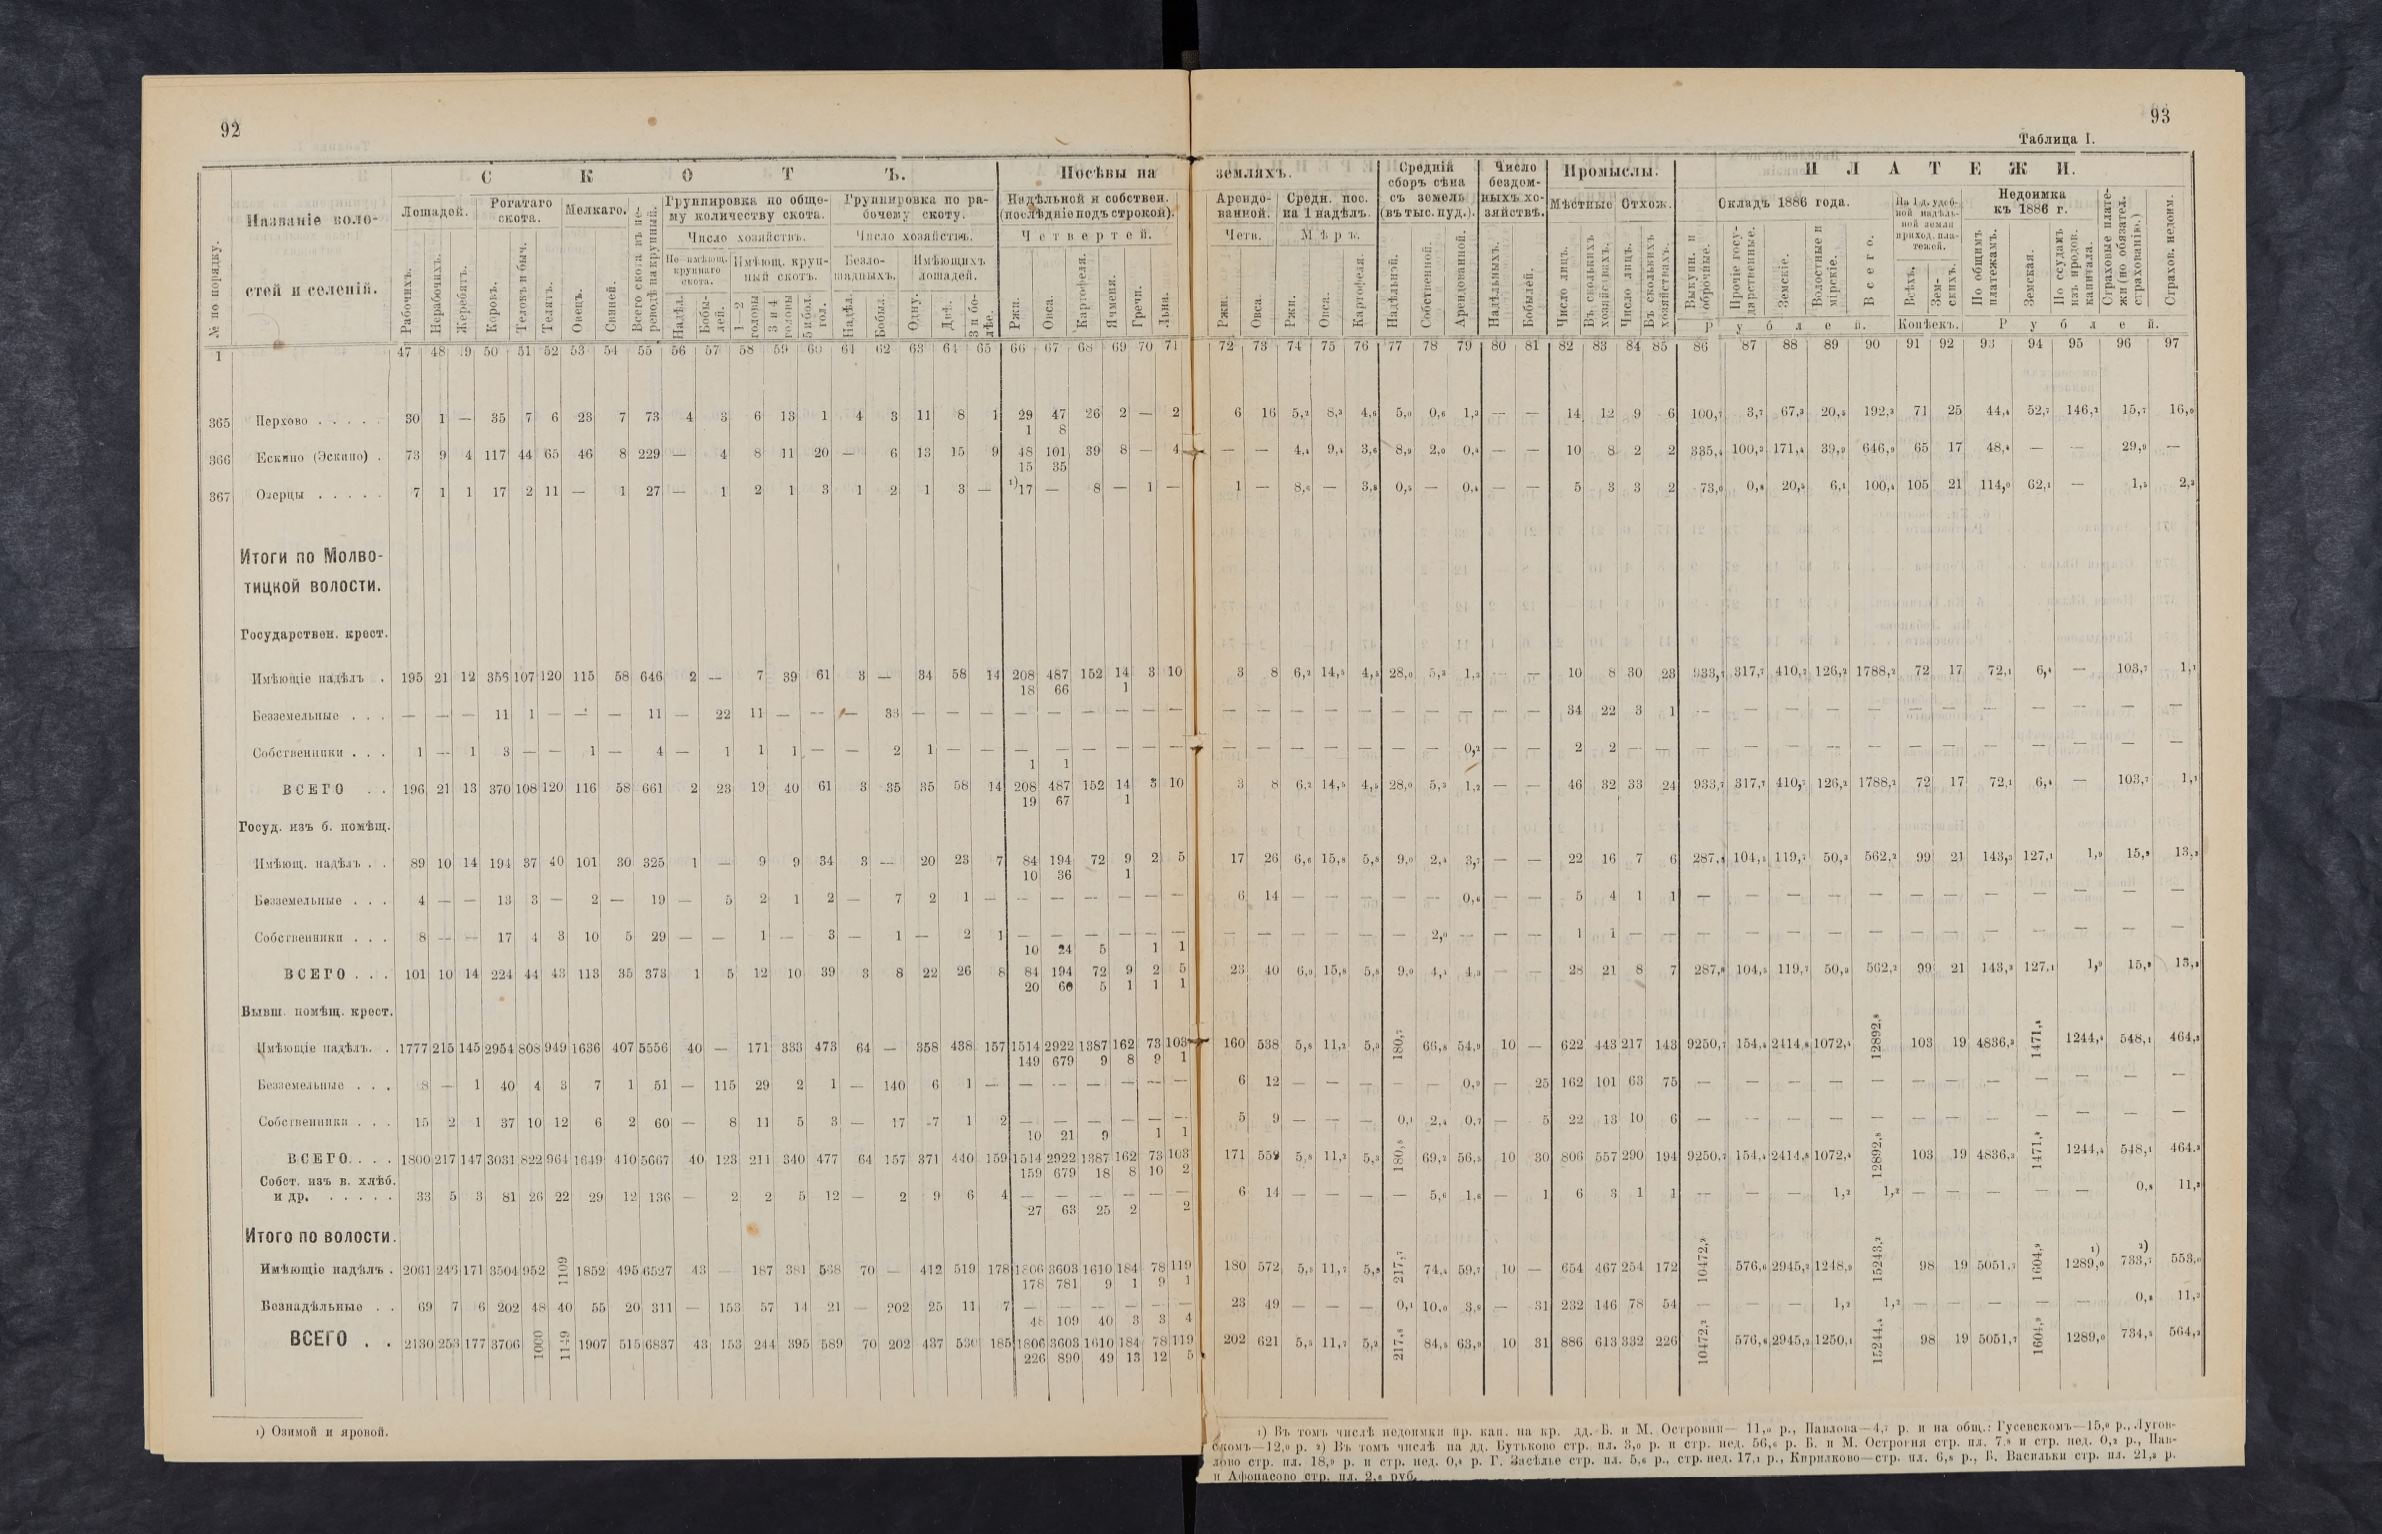 92
С К О Т Ъ.
Посѣвы на
№ по порядку.
Названіе воло-
стей и селеній.
Лошадей.
Рогатаго
скота.
Мелкаго.
Всего скота въ пе-
реводѣ на крупный.
Группировка по обще-
му количеству скота.
Группировка по ра-
бочему скоту.
Надѣльной и собствен.
(послѣдніе подъ строкой).
Число хозяйствъ.
Число хозяйствъ.
Четвертей.
Не имѣющ.
крупнаго
скота.
Имѣющ. круп-
ный скотъ.
Безло-
шадныхъ.
Имѣющихъ
лошадей.
Рабочихъ.
Нерабочихъ.
Жеребятъ.
Коровъ.
Телокъ и быч.
Телятъ.
Овецъ.
Свиней.
Надѣл.
Бобы-
лей.
1—2
головы
3 и 4
головы
5 и бол.
гол.
Надѣл.
Бобыл.
Одну.
Двѣ.
3 и бо-
лѣе.
Ржи.
Овса.
Картофеля.
Ячменя.
Гречи.
Льна.
1 47 48 49 50 51 52 53 54 55 56 57 58 59 60 61 62 63 64 65 66 67 68 69 70 71
365 Перхово . . . . . 30 1 — 35 7 6 23 7 73 4 3 6 13 1 4 3 11 8 1 29 47 26 2 — 2
1 8
366 Ескино (Эскино) . 73 9 4 117 44 65 46 8 229 — 4 8 11 20 — 6 13 15 9 48 101 39 8 — 4
15 35
367 Озерцы . . . . . 7 1 1 17 2 11 — 1 27 — 1 2 1 3 1 2 1 3 — ¹)17 — 8 — 1 —
Итоги по Молво-
тицкой волости.
Государствен. крест.
Имѣющіе надѣлъ . 195 21 12 356 107 120 115 58 646 2 — 7 39 61 3 — 34 58 14 208 487 152 14 3 10
18 66 1
Безземельные . . . — — — 11 1 — — — 11 — 22 11 — — — 33 — — — — — — — — —
Собственники . . . 1 — 1 3 — — 1 — 4 — 1 1 1 — — 2 1 — — — — — — — —
1 1
ВСЕГО . . 196 21 13 370 108 120 116 58 661 2 23 19 40 61 3 35 35 58 14 208 487 152 14 3 10
19 67 1
Госуд. изъ б. помѣщ.
Имѣющ. надѣлъ . . 89 10 14 194 37 40 101 30 325 1 — 9 9 34 3 — 20 23 7 84 194 72 9 2 5
10 36 1
Безземельные . . . 4 — — 13 3 — 2 — 19 — 5 2 1 2 — 7 2 1 — — — — — — —
Собственники . . . 8 — — 17 4 3 10 5 29 — — 1 — 3 — 1 — 2 1 — — — — — —
10 24 5 1 1
ВСЕГО . . . 101 10 14 224 44 43 113 35 373 1 5 12 10 39 3 8 22 26 8 84 194 72 9 2 5
20 60 5 1 1 1
Бывш. помѣщ. крест.
Имѣющіе надѣлъ. . 1777 215 145 2954 808 949 1636 407 5556 40 — 171 333 473 64 — 358 438 157 1514 2922 1387 162 73 103
149 679 9 8 9 1
Безземельные . . . 8 — 1 40 4 3 7 1 51 — 115 29 2 1 — 140 6 1 — — — — — — —
Собственники . . . 15 2 1 37 10 12 6 2 60 — 8 11 5 3 — 17 7 1 2 — — — — — —
10 21 9 1 1
ВСЕГО. . . . 1800 217 147 3031 822 964 1649 410 5667 40 123 211 340 477 64 157 371 440 159 1514 2922 1387 162 73 103
159 679 18 8 10 2
Собст. изъ в. хлѣб.
и др. . . . . . 33 5 3 81 26 22 29 12 136 — 2 2 5 12 — 2 9 6 4 — — — — — —
27 63 25 2 2
Итого по волости.
Имѣющіе надѣлъ . 2061 246 171 3504 952 1109 1852 495 6527 43 — 187 381 568 70 — 412 519 178 1806 3603 1610 184 78 119
178 781 9 1 9 1
Безнадѣльные . . 69 7 6 202 48 40 55 20 311 — 153 57 14 21 — 202 25 11 7 — — — — — —
48 109 40 3 3 4
ВСЕГО . . 2130 253 177 3706 1000 1149 1907 515 6837 43 153 244 395 589 70 202 437 530 185 1806 3603 1610 184 78 119
226 890 49 13 12 5
¹) Озимой и яровой.
93
Таблица I.
земляхъ.
Средній
сборъ сѣна
съ земель
(въ тыс. пуд.).
Число
бездом-
ныхъ хо-
зяйствъ.
Промыслы.
П Л А Т Е Ж И.
Арендо-
ванной.
Средн. пос.
на 1 надѣлъ.
Мѣстные
Отхож.
Окладъ 1886 года.
На 1 д. удоб-
ной надѣль-
ной земли
приход. пла-
тежей.
Недоимка
къ 1886 г.
Страховые плате-
жи (по обязател.
страхованію.)
Страхов. недоим.
Четв.
Мѣръ.
Ржи.
Овса.
Ржи.
Овса.
Картофеля.
Надѣльной.
Собственной.
Арендованной.
Надѣльныхъ.
Бобылей.
Число лицъ.
Въ сколькихъ
хозяйствахъ.
Число лицъ.
Въ сколькихъ
хозяйствахъ.
Выкупн. и
оброчные.
Прочіе госу-
дарственные.
Земскіе.
Волостные и
мірскіе.
Всего.
Всѣхъ.
Зем-
скихъ.
По общимъ
платежамъ.
Земская.
По ссудамъ
изъ народ.
капитала.
Рублей.
Копѣекъ.
Рублей.
72 73 74 75 76 77 78 79 80 81 82 83 84 85 86 87 88 89 90 91 92 93 94 95 96 97
6 16 5,₂ 8,₃ 4,₆ 5,₀ 0,₆ 1,₃ — — 14 12 9 6 100,₇ 3,₇ 67,₃ 20,₅ 192,₃ 71 25 44,₄ 52,₇ 146,₂ 15,₇ 16,₀
— — 4,₄ 9,₄ 3,₆ 8,₉ 2,₀ 0,₄ — — 10 8 2 2 335,₄ 100,₃ 171,₄ 39,₉ 646,₉ 65 17 48,₄ — — 29,₉ —
1 — 8,₆ — 3,₈ 0,₅ — 0,₄ — — 5 3 3 2 73,₀ 0,₈ 20,₅ 6,₁ 100,₄ 105 21 114,₀ 62,₁ — 1,₅ 2,₃
3 8 6,₂ 14,₅ 4,₅ 28,₀ 5,₃ 1,₂ — — 10 8 30 23 933,₇ 317,₇ 410,₇ 126,₂ 1788,₂ 72 17 72,₁ 6,₄ — 103,₇ 1,₁
— — — — — — — — — — 34 22 3 1 — — — — — — — — — — — —
— — — — — — — 0,₂ — — 2 2 — — — — — — — — — — — — — —
3 8 6,₂ 14,₅ 4,₅ 28,₀ 5,₃ 1,₂ — — 46 32 33 24 933,₇ 317,₇ 410,₇ 126,₂ 1788,₂ 72 17 72,₁ 6,₄ — 103,₇ 1,₁
17 26 6,₆ 15,₈ 5,₈ 9,₀ 2,₄ 3,₇ — — 22 16 7 6 287,₈ 104,₅ 119,₇ 50,₃ 562,₂ 99 21 143,₃ 127,₁ 1,₉ 15,₉ 13,₃
6 14 — — — — — 0,₆ — — 5 4 1 1 — — — — — — — — — — — —
— — — — — — 2,₀ — — — 1 1 — — — — — — — — — — — — — —
23 40 6,₉ 15,₈ 5,₈ 9,₀ 4,₄ 4,₃ — — 28 21 8 7 287,₈ 104,₅ 119,₇ 50,₃ 562,₂ 99 21 143,₃ 127,₁ 1,₉ 15,₉ 13,₃
160 538 5,₈ 11,₂ 5,₃ 180,₇ 66,₈ 54,₉ 10 — 622 443 217 143 9250,₇ 154,₄ 2414,₈ 1072,₄ 12892,₈ 103 19 4836,₃ 1471,₄ 1244,₄ 548,₁ 464,₃
6 12 — — — — — 0,₉ — 25 162 101 63 75 — — — — — — — — — — — —
5 9 — — — 0,₁ 2,₄ 0,₇ — 5 22 13 10 6 — — — — — — — — — — — —
171 559 5,₈ 11,₂ 5,₃ 180,₈ 69,₂ 56,₅ 10 30 806 557 290 194 9250,₇ 154,₄ 2414,₈ 1072,₄ 12892,₈ 103 19 4836,₃ 1471,₄ 1244,₄ 548,₁ 464,₃
6 14 — — — — 5,₆ 1,₈ — 1 6 3 1 1 — — — 1,₂ 1,₂ — — — — — 0,₈ 11,₂
180 572 5,₅ 11,₇ 5,₃ 217,₇ 74,₄ 59,₇ 10 — 654 467 254 172 10472,₂ 576,₆ 2945,₂ 1248,₉ 15243,₂ 98 19 5051,₇ 1604,₉ ¹) 1289,₀ ²) 733,₇ 553,₀
23 49 — — — 0,₁ 10,₀ 3,₈ — 31 232 146 78 54 — — — 1,₂ 1,₂ — — — — — 0,₈ 11,₂
202 621 5,₅ 11,₇ 5,₂ 217,₈ 84,₅ 63,₉ 10 31 886 613 332 226 10472,₂ 576,₆ 2945,₂ 1250,₁ 15244,₄ 98 19 5051,₇ 1604,₉ 1289,₀ 734,₅ 564,₂
¹) Въ томъ числѣ недоимки пр. кап. на кр. дд. Б. и М. Островни— 11,₀ р., Павлова—4,₇ р. и на общ.: Гусевскомъ—15,₀ р., Лугов-
скомъ—12,₀ р. ²) Въ томъ числѣ на дд. Бутьково стр. пл. 3,₀ р. и стр. нед. 56,₆ р. Б. и М. Острогня стр. пл. 7,₈ и стр. нед. 0,₂ р., Пав-
лово стр. пл. 18,₉ р. и стр. нед. 0,₈ р. Г. Засѣлье стр. пл. 5,₆ р., стр. нед. 17,₁ р., Кирилково—стр. пл. 6,₈ р., Б. Васильки стр. пл. 21,₃ р.
и Афонасово стр. пл. 2,₆ руб.